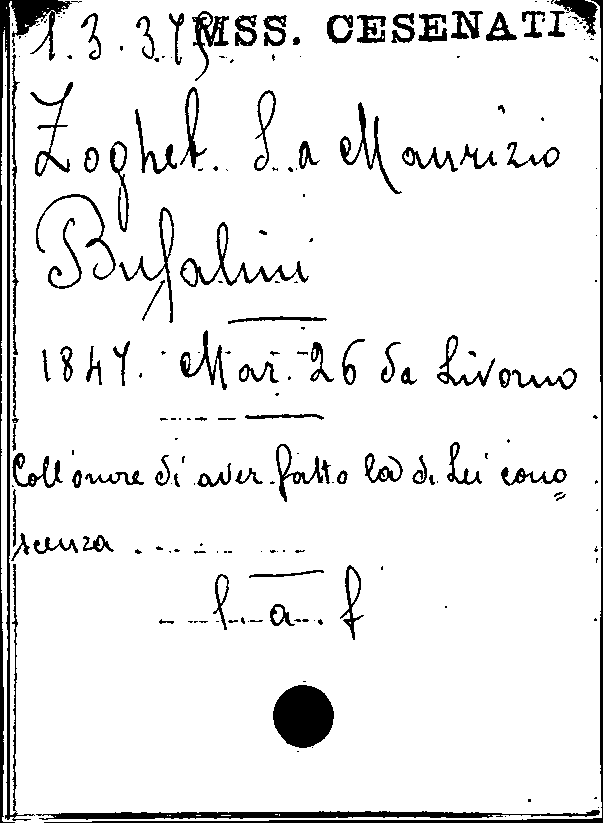 1.3.375 MSS. CESENATI
Zoghet. L. a Maurizio
Bufalini
1847. Mar. 26 da Livorno
Coll'onore di aver fatto la di Lei cono=
scenza
l. a. f